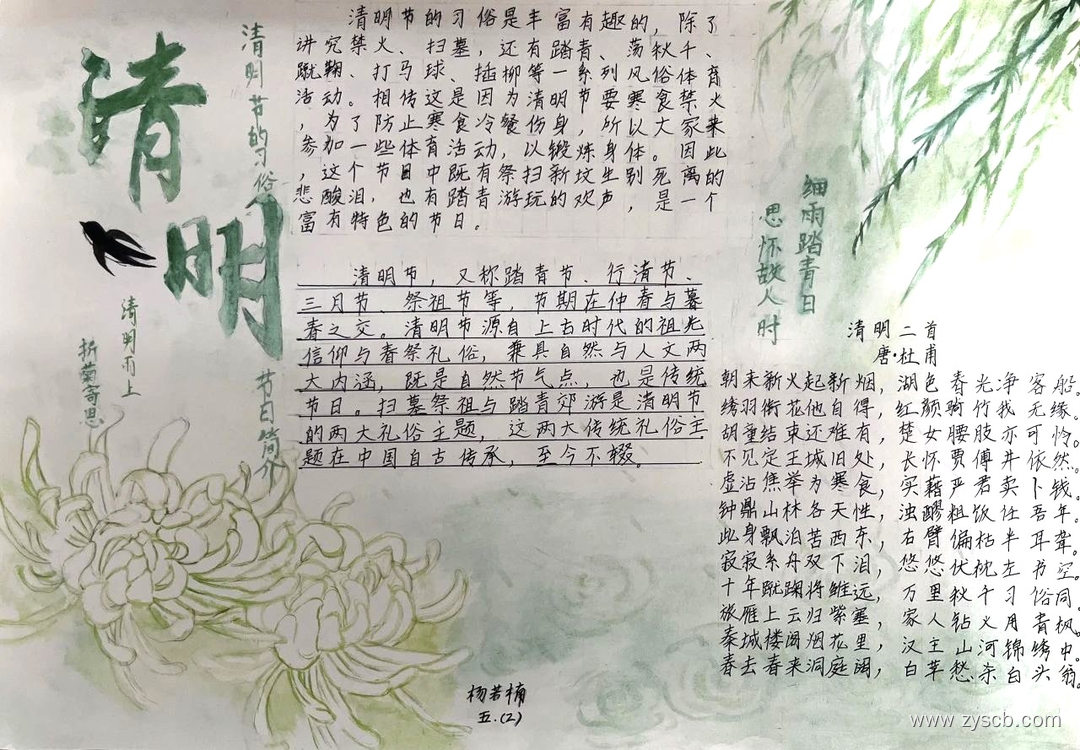 清明
清明节的习俗
清明节的习俗是丰富有趣的，除了
讲究禁火、扫墓，还有踏青、荡秋千、
蹴鞠、打马球、插柳等一系列风俗体育
活动。相传这是因为清明节要寒食禁火
，为了防止寒食冷餐伤身，所以大家来
参加一些体育活动，以锻炼身体。因此
，这个节日中既有祭扫新坟生别死离的
悲酸泪，也有踏青游玩的欢声，是一个
富有特色的节日。
节日简介
清明节，又称踏青节、行清节、
三月节、祭祖节等，节期在仲春与暮
春之交。清明节源自上古时代的祖先
信仰与春祭礼俗，兼具自然与人文两
大内涵，既是自然节气点，也是传统
节日。扫墓祭祖与踏青郊游是清明节
的两大礼俗主题，这两大传统礼俗主
题在中国自古传承，至今不辍。
清明雨上
折菊寄思
细雨踏青日
思怀故人时
清明二首
唐·杜甫
朝来新火起新烟，湖色春光净客船。
绣羽衔花他自得，红颜骑竹我无缘。
胡童结束还难有，楚女腰肢亦可怜。
不见定王城旧处，长怀贾傅井依然。
虚沾焦举为寒食，实藉严君卖卜钱。
钟鼎山林各天性，浊醪粗饭任吾年。
此身飘泊苦西东，右臂偏枯半耳聋。
寂寂系舟双下泪，悠悠伏枕左书空。
十年蹴踘将雏远，万里秋千习俗同。
旅雁上云归紫塞，家人钻火用青枫。
秦城楼阁烟花里，汉主山河锦绣中。
春去春来洞庭阔，白苹愁杀白头翁。
杨若楠
五.(2)
www.zyscb.com